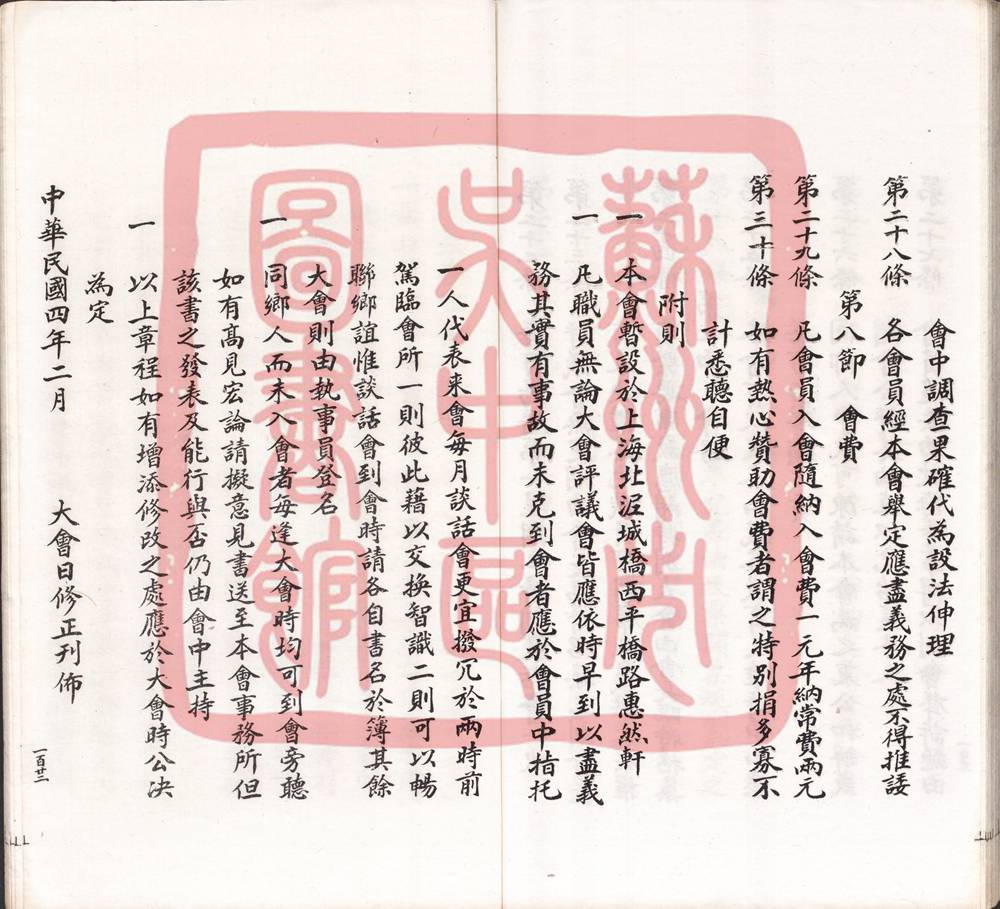 會中調查果確代為設法伸理
第二十八條　各會員經本會舉定應盡義務之處不得推諉
第八節　會費
第二十九條　凡會員入會隨納入會費一元年納常費兩元
第三十條　如有熱心贊助會費者謂之特別捐多寡不
計悉聽自便
附則
一　本會暫設於上海北泥城橋西平橋路惠然軒
一　凡職員無論大會評議會皆應依時早到以盡義
務其實有事故而未克到會者應於會員中指托
一人代表来會每月談話會更宜撥冗於兩時前
駕臨會所一則彼此藉以交換智識二則可以暢
聯鄉誼惟談話會到會時請各自書名於簿其餘
大會則由執事員登名
一　同鄉人而未入會者每逢大會時均可到會旁聽
如有高見宏論請擬意見書送至本會事務所但
該書之發表及能行與否仍由會中主持
一　以上章程如有增添修改之處應於大會時公決
為定
中華民國四年二月　大會日修正刊佈
一百廿三
蘇州市
吳中區
圖書館